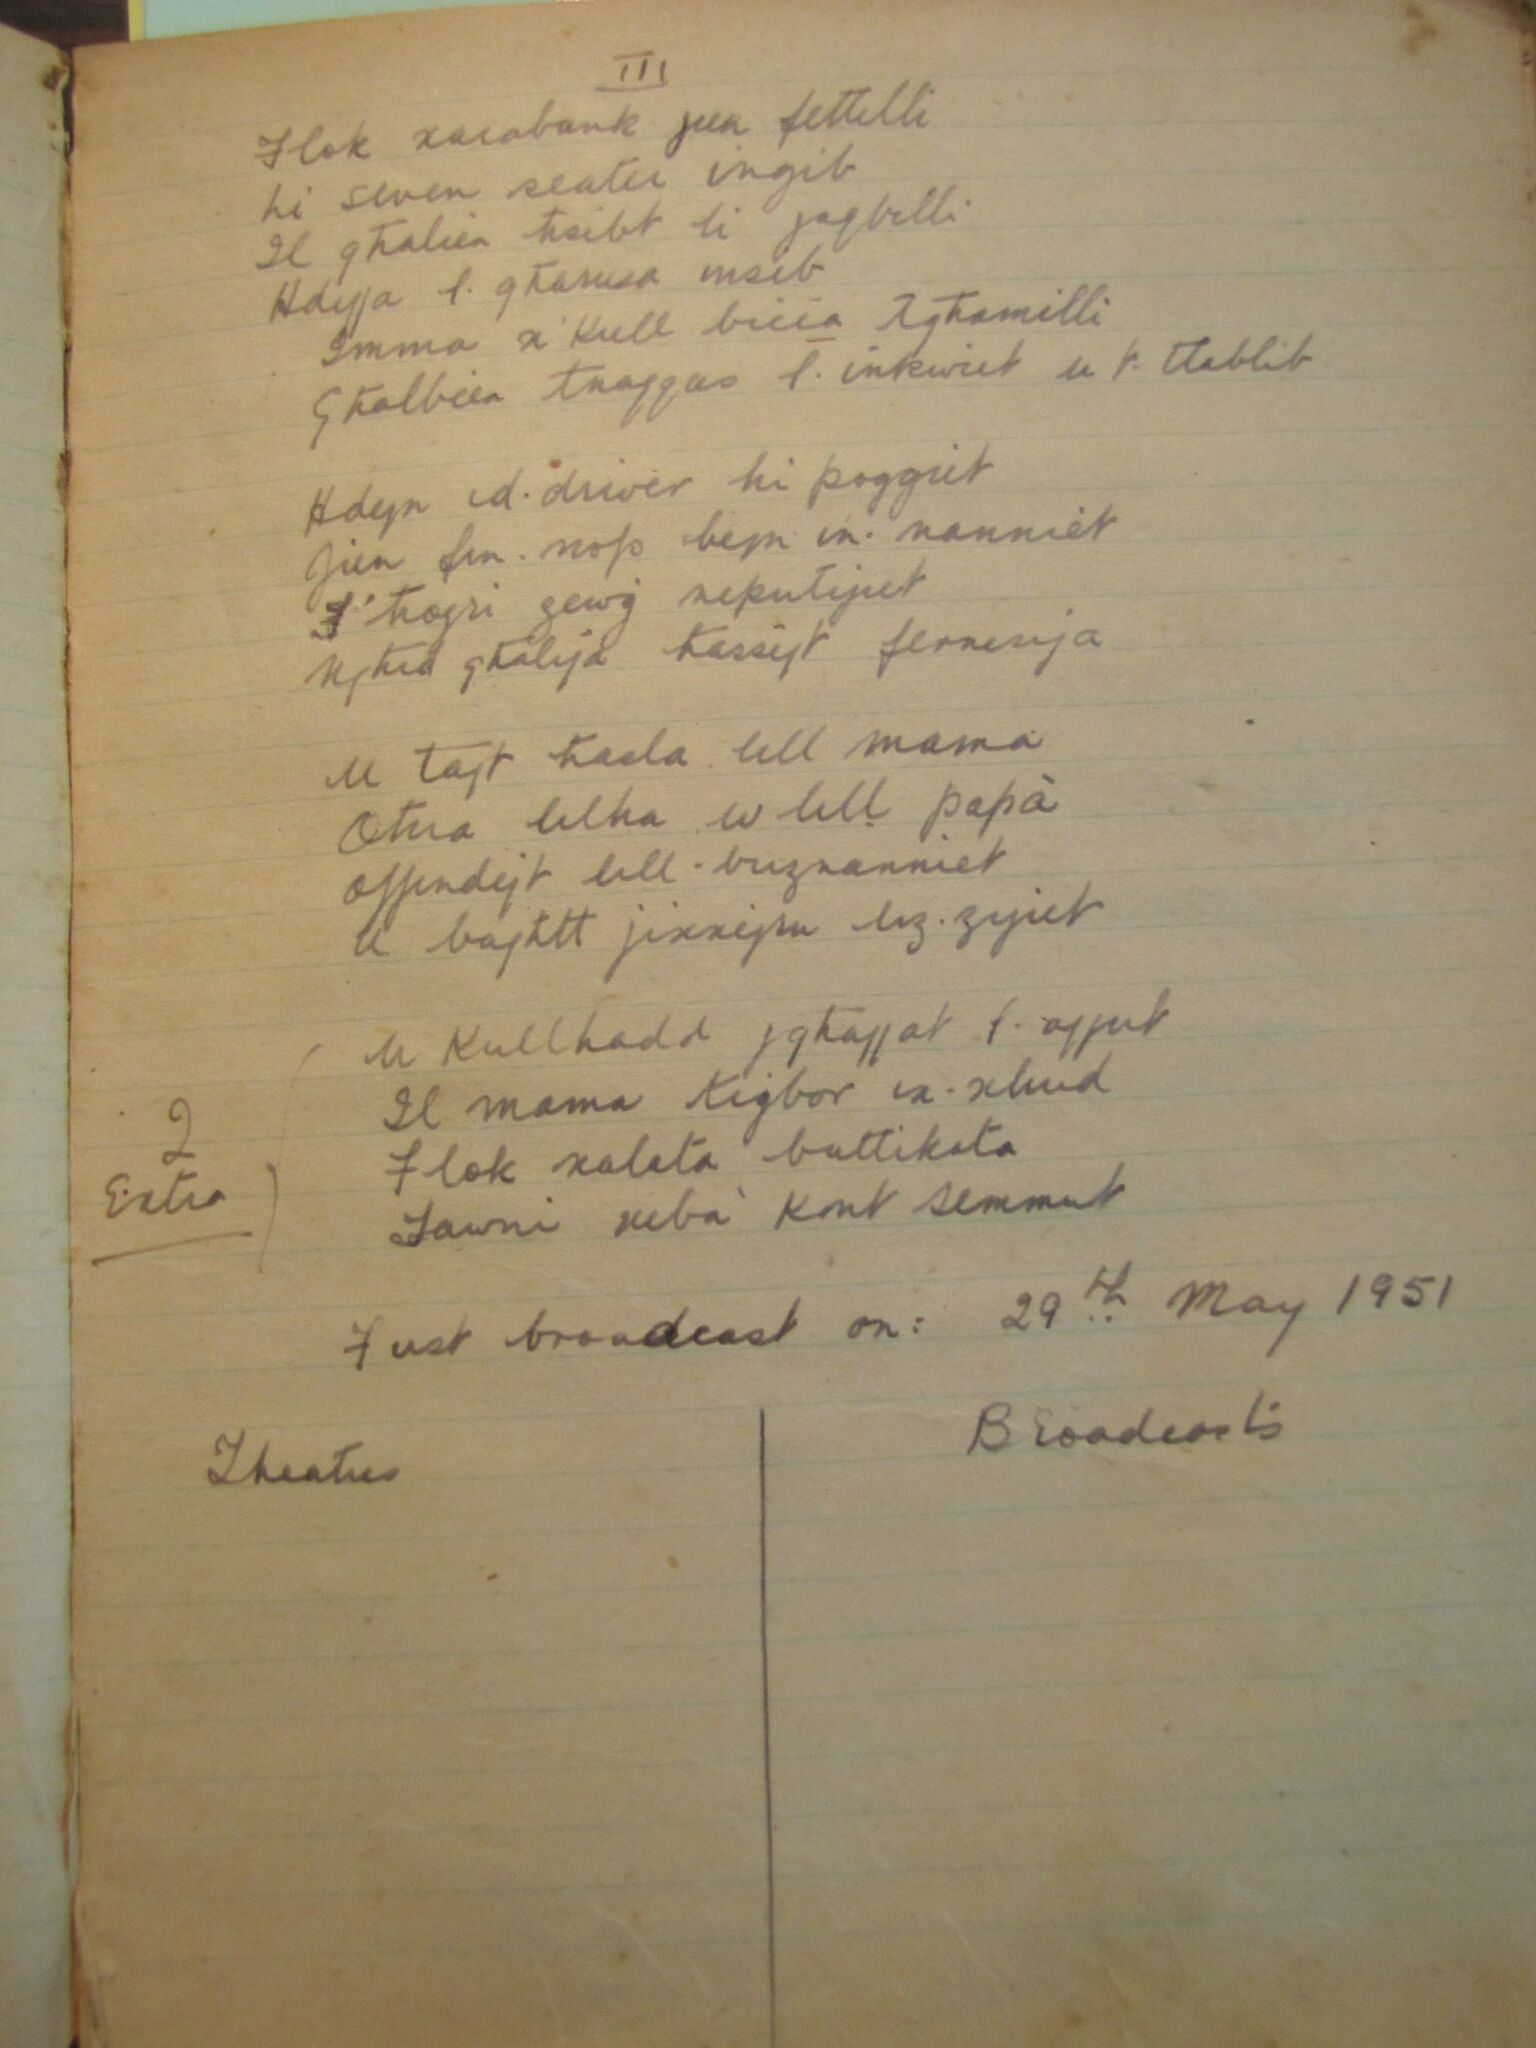 III
Flok xarabank jien fettilli
hi seven seater ingib
Il għalien ħsibt li jaqbilli
Ħdejja l. għarusa insib
Imma x'Kull biċċa tgħamilli
Għalbiex tnaqqas l. inkwiet u t. tlablib
Ħdejn id. driver hi poġġiet
Jien fin. nofs bejn in. nanniet
F'ħoġri żewġ neputijiet
U għid għalija ħassejt fernesija
U tajt ħasla lill mama
Oħra lilha w lill papà
Offendejt lill. buznanniet
U bagħtt jixxejru liz. zijiet
2
Extra
U Kullħadd jgħajjat l. ajjut
Il mama tiġbor ix. xlud
Flok xalata buttikata
Tawni xeba' Kont semmut
First broadcast on: 29th May 1951
Theatres
Broadcasts